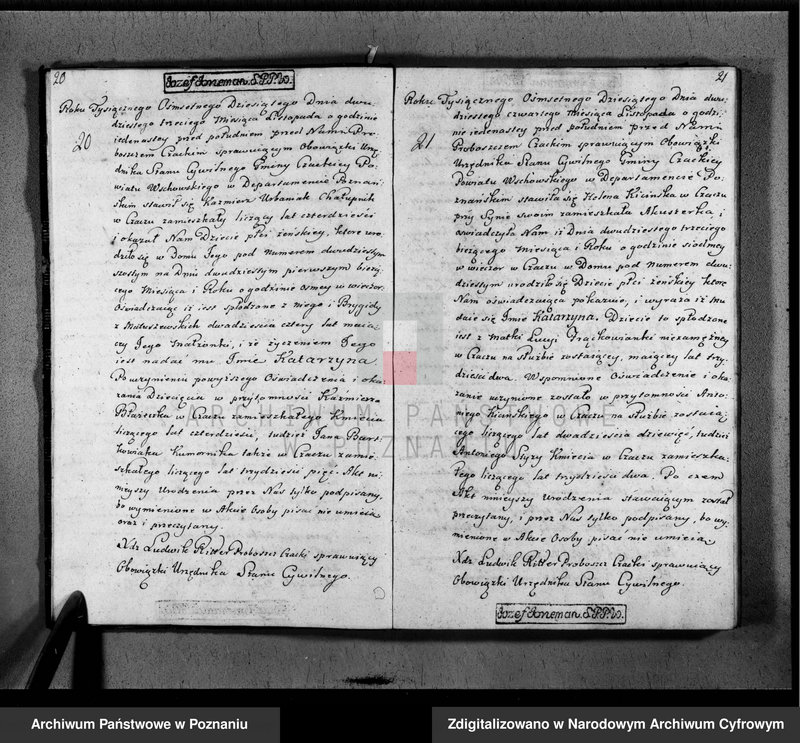 20
Jozef Jzneman. S.P.P.W.
Roku Tysiącznego Ośmsetnego Dziesiątego Dnia dwu-
dziestego trzeciego Miesiąca Listopada o godzinie
20
jedenastey przed południem przed Nami Pro-
boszczem Czackim sprawuiącym Obowiązki Urzę-
dnika Stanu Cywilnego Gminy Czackiey Po-
wiatu Wschowskiego w Departamencie Poznań-
skim stawił się Kazmierz Urbaniak Chałupnik
w Czaczu zamieszkały liczący lat czterdzieści
i okazał Nam Dziecie płci żeńskiey, ktore uro-
dziło się w Domu Jego pod Numerem dwudziestym
szostym na Dniu dwudziestym pierwszym bieżą-
cego Miesiąca i Roku o godzinie osmey w wieczor.
Oświadczaiąc iż iest spłodzone z niego i Brygidy
z Matuszewskich dwadzieścia cztery lat maią-
cey Jego małżonki, i że życzeniem Jego
iest nadać mu Imie Katarzyna.
Po uczynieniu powyższego Oświadczenia i oka-
zania Dziecięcia w przytomności Kaźmierza
w Czaczu zamieszkałego Kmiecia
liczącego lat czterdzieści, tudzież Jana Bart-
kowiaka Komornika także w Czaczu zamie-
szkałego liczącego lat trzydzieści pięć. Akt ni-
nieyszy Urodzenia przez Nas tylko podpisany,
bo wymienione w Akcie Osoby pisac nie umieią
oraz i przeczytany.
Xdz Ludwik Ritter Proboszcz Czacki sprawuiący
Obowiązki Urzędnika Stanu Cywilnego.
21
Roku Tysiącznego Ośmsetnego Dziesiątego Dnia dwu-
dziestego czwartego Miesiąca Listopada o godzi-
21
nie jedenastey przed południem przed Nami
Proboszczem Czackim sprawuiącym Obowiązki
Urzędnika Stanu Cywilnego Gminy Czackiey
Powiatu Wschowskiego w Departamencie Po-
znańskim stawiła się Helena Kicińska w Czaczu
przy Synie swoim zamieszkała Akuszerka, i
oświadczyła Nam iż Dnia dwudziestego trzeciego
bieżącego Miesiąca i Roku o godzinie siodmey
w wieczor w Czaczu w Domu pod Numerem dwu-
dziestym urodziło się Dziecie płci żeńskiey ktore
Nam oświadczaiąca pokazuie, i wyraża iż mu
daie się Imie Katarzyna. Dziecie to spłodzone
iest z matki Lucyi niezamężney
w Czaczu na służbie zostaiącey, maiącey lat trzy-
dzieści dwa. Wspomnione Oświadczenie i oka-
zanie uczynione zostało w przytomności Anto-
niego Kicińskiego w Czaczu na służbie zostaią-
cego liczącego lat dwadzieścia dziewięć, tudzież
Antoniego Kmiecia w Czaczu zamieszka-
łego liczącego lat trzydzieści dwa. Po czem
Akt ninieyszy Urodzenia stawaiącym został
przeczytany, i przez Nas tylko podpisany, bo wy-
mienione w Akcie Osoby pisać nie umieią.
Xdz Ludwik Ritter Proboszcz Czacki sprawuiący
Obowiązki Urzędnika Stanu Cywilnego.
Jozef Jzneman. S.P.P.W.
ARCHIWUM PAŃSTWOWE
W POZNANIU
Archiwum Państwowe w Poznaniu
Zdigitalizowano w Narodowym Archiwum Cyfrowym